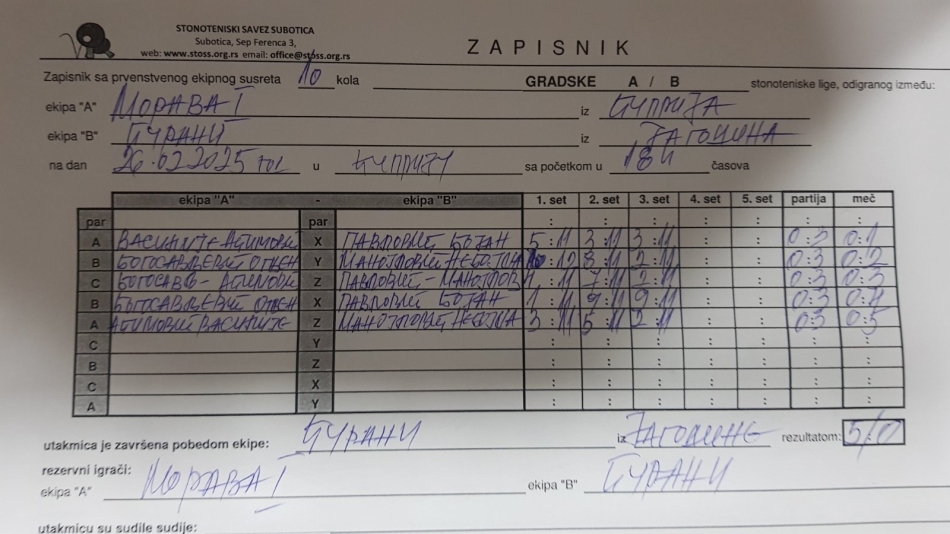 STONOTENISKI SAVEZ SUBOTICA
Subotica, Sep Ferenca 3,
web: www.stoss.org.rs email: office@stoss.org.rs
ZAPISNIK
Zapisnik sa prvenstvenog ekipnog susreta 10 kola GRADSKE A / B stonoteniske lige, odigranog između:
ekipa "A" МОРАВА I iz ЋУПРИЈА
ekipa "B" ЂУРАЂ iz ЈАГОДИНА
na dan 26.02.2025 u ЋУПРИЈИ sa početkom u 18 časova
ekipa "A" - ekipa "B" 1. set 2. set 3. set 4. set 5. set partija meč
par par : : : : : : :
A ВАСИЛИЈЕ X ПАВЛОВИЋ БОЈАН 5:11 3:11 3:11 : : 0:3 0:1
B БОГОСАВЉЕВИЋ ОГЊЕН Y 10:12 8:11 2:11 : : 0:3 0:2
C Z ПАВЛОВИЋ - 7:11 2:11 : : 0:3 0:3
B БОГОСАВЉЕВИЋ ОГЊЕН X ПАВЛОВИЋ БОЈАН 1:11 9:11 9:11 : : 0:3 0:4
A ВАСИЛИЈЕ Z 3:11 5:11 2:11 : : 0:3 0:5
C Y : : : : : : :
B Z : : : : : : :
C X : : : : : : :
A Y : : : : : : :
utakmica je završena pobedom ekipe: iz ЈАГОДИНЕ rezultatom: 5/0
rezervni igrači:
ekipa "A" МОРАВА I ekipa "B"
utakmicu su sudile sudije: